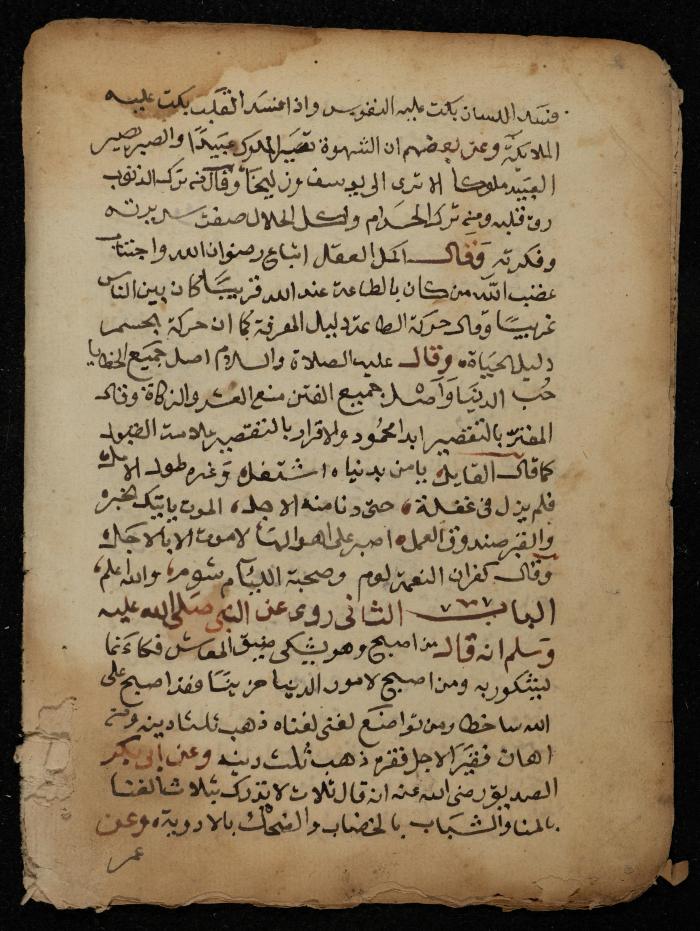 فسد اللسان بكت عليه النفوس واذا فسد القلب بكت عليه
الملايكة وعن بعضهم ان الشهوة تصير الملوك عبيدا والصبر يصير
العبيد ملوكا الا ترى الى يوسف وزليخا وقال من ترك الذنوب
رق قلبه ومن ترك الحرام واكل الحلال صفت سريرته
وفكرته وقال اكمل العقل اتباع رضوان الله واجتناب
غضب الله من كان بالطاعة عند الله قريبا كان بين الناس
غريبا وقال حركة الطاعة دليل المعرفة كما ان حركة الجسم
دليل الحياة وقال عليه الصلاة والسلام اصل جميع الخطايا
حب الدنيا واصل جميع الفتن منع العشر والزكاة وقال
المقر بالتقصير ابدا محمود والاقرار بالتقصير علامت القبول
كما قال القايل يامن بدنياه اشتغل وغره طول الامل
فلم يزل فى غفلة حتى دنا منه الاجل الموت ياتيك بخبره
والقبر صندوق العمل اصبر على اهوالها لا موت الا بالاجل
وقال كفران النعمة لوم وصحبة اللئام شوم والله اعلم
الباب الثانى روى عن النبى صلى الله عليه
وسلم انه قال من اصبح وهو يشكى ضيق المعاش فكاءنما
يشكو ربه ومن اصبح لامور الدنيا حزينا فقد اصبح على
الله ساخطا ومن تواضع لغنى لغناه ذهب ثلثا دينه ومن
اهان فقيرا لاجل فقره ذهب ثلث دينه وعن ابى بكر
الصديق رضى الله عنه انه قال ثلاث لا تدرك بثلاث الغنا
بالمنا والشباب بالخضاب والضحك بالادوية وعن
عمر